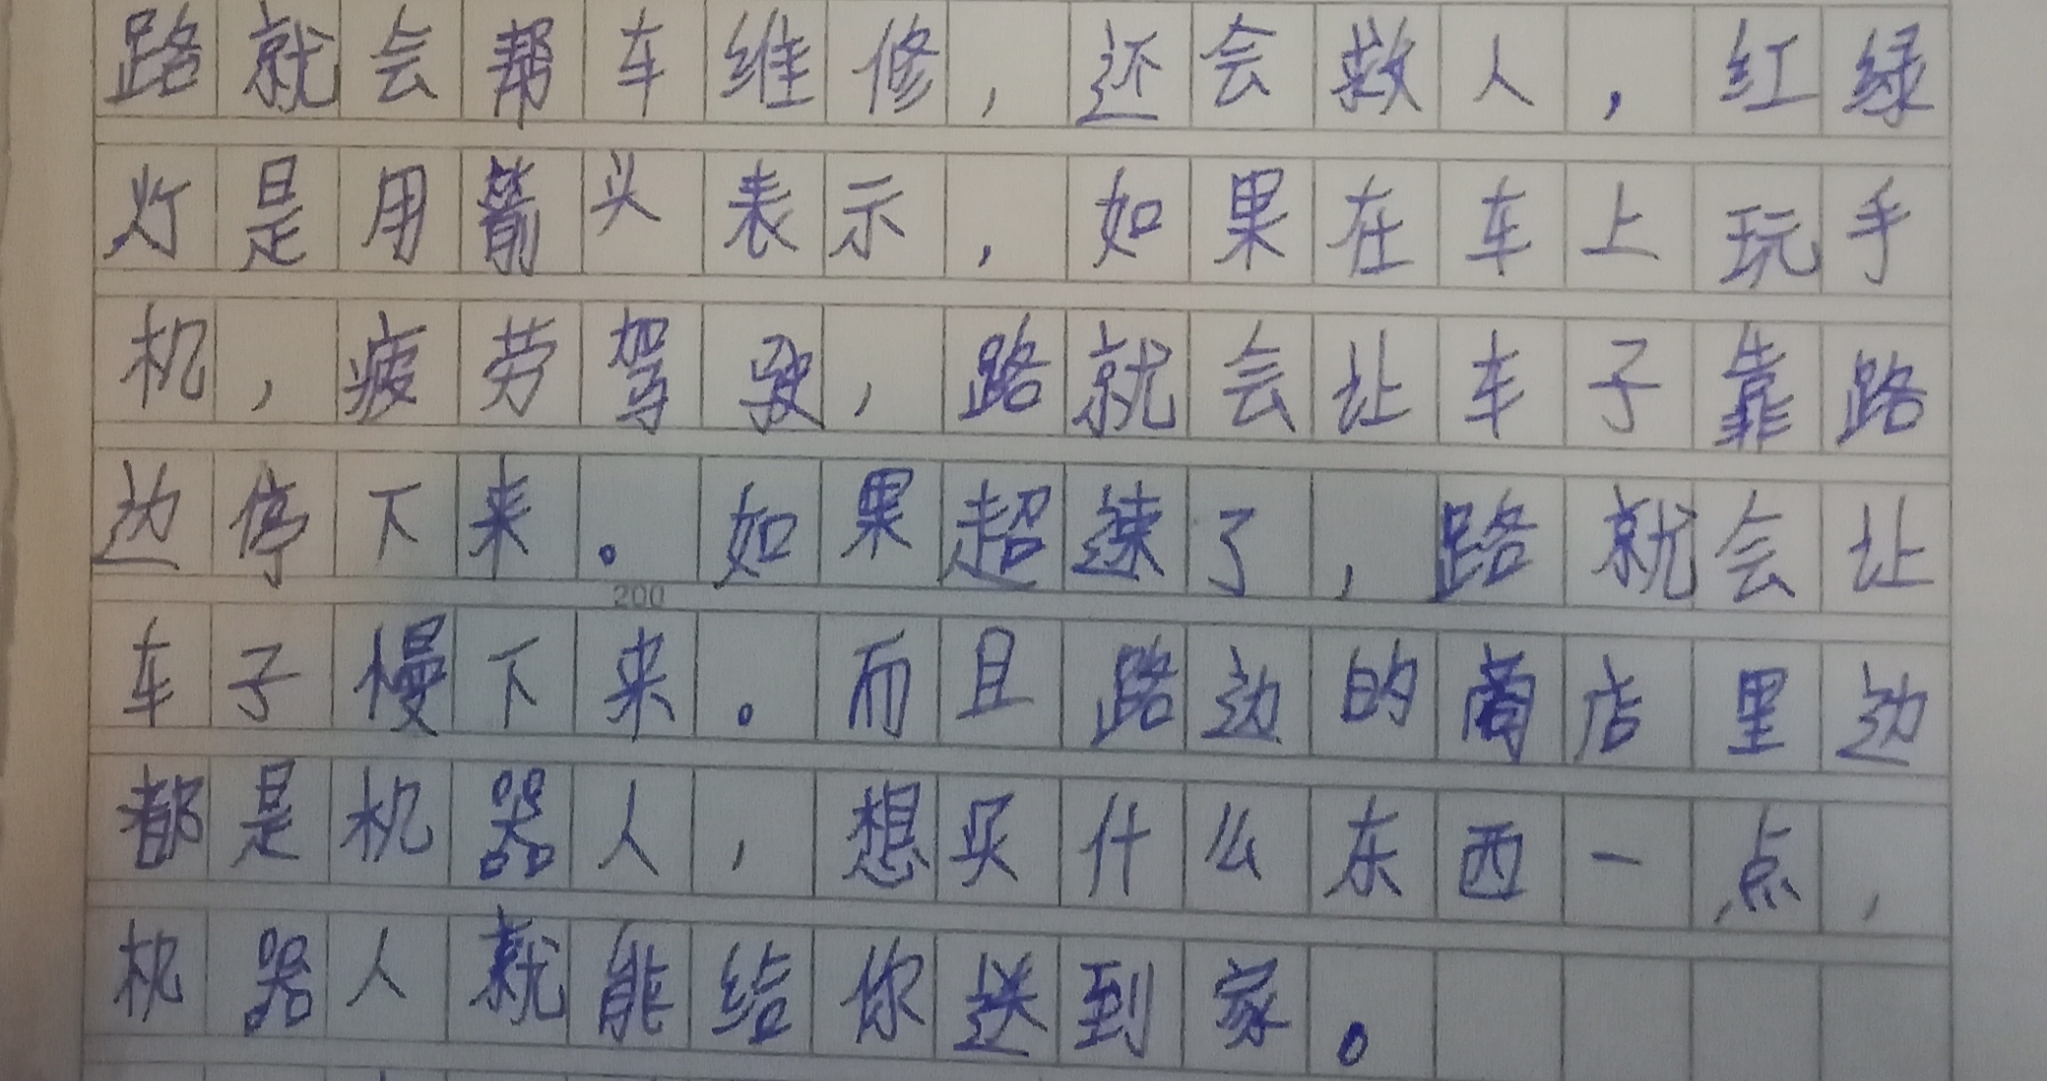 路就会帮车维修，还会救人，红绿
灯是用箭头表示，如果在车上玩手
机，疲劳驾驶，路就会让车子靠路
边停下来。如果超速了，路就会让
200
车子慢下来。而且路边的商店里边
都是机器人，想买什么东西一点，
机器人就能给你送到家。